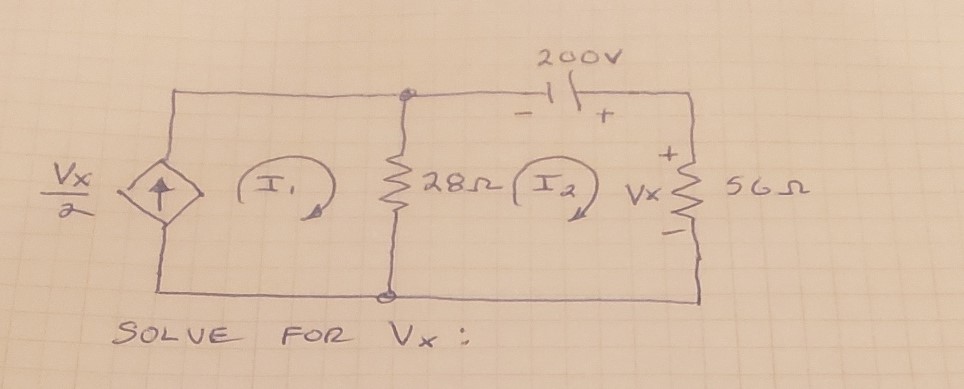 200V
- +
Vx/2
I1
28Ω
I2
+
Vx
-
56Ω
SOLVE FOR Vx: